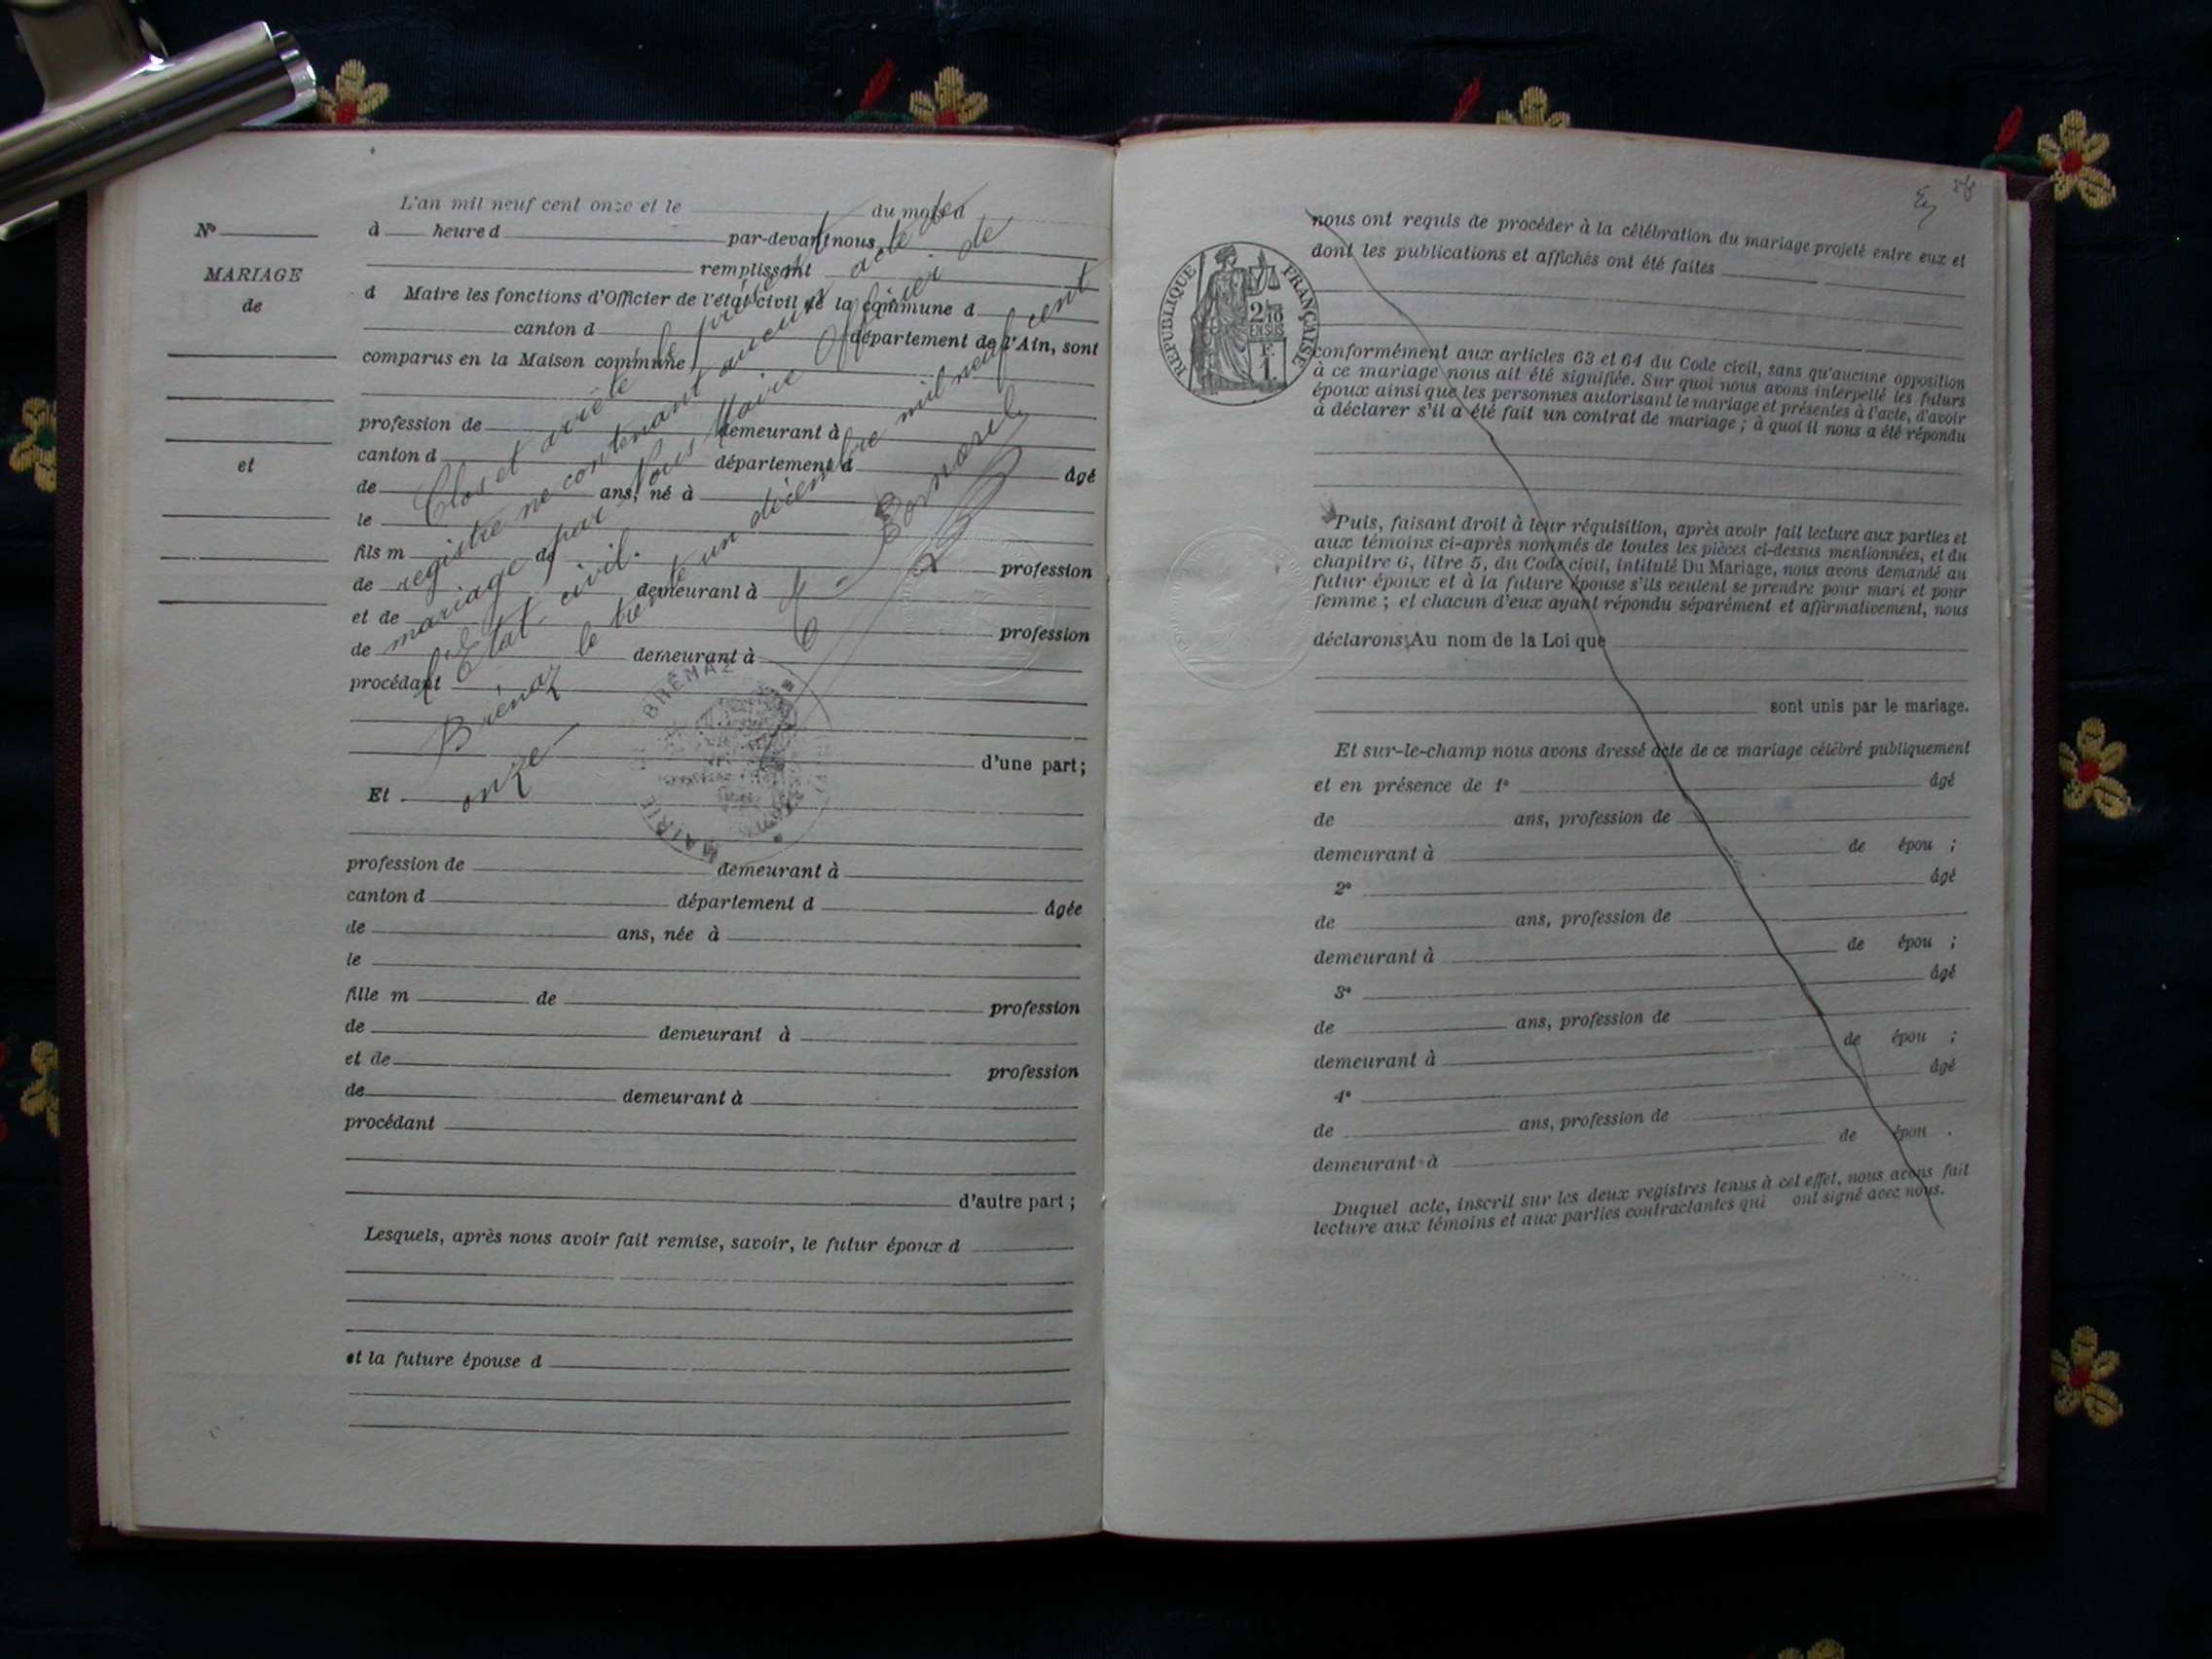 L'an mil neuf cent onze et le du mois d
N° à heure d par-devant nous,
MARIAGE
de
remplissant
d Maire les fonctions d'Officier de l'état civil de la commune d
canton d département de l'Ain, sont
comparus en la Maison commune
profession de demeurant à
et
canton d département d âgé
de ans, né à
le
fils m de profession
de demeurant à
et de profession
de demeurant à
procédant
d'une part;
Et
profession de demeurant à
canton d département d âgée
de ans, née à
le
fille m de profession
de demeurant à
et de profession
de demeurant à
procédant
d'autre part;
Lesquels, après nous avoir fait remise, savoir, le futur époux d
et la future épouse d
Clos et arrêté le présent
registre ne contenant aucun acte de
mariage par Nous Maire Officier de
l'Etat-civil.
Brénaz le trente un décembre mil neuf cent
onze
MAIRIE BRÉNAZ
nous ont requis de procéder à la célébration du mariage projeté entre eux et
dont les publications et affiches ont été faites
RÉPUBLIQUE FRANÇAISE
2/10
EN SUS
F.
1.
conformément aux articles 63 et 64 du Code civil, sans qu'aucune opposition
à ce mariage nous ait été signifiée. Sur quoi nous avons interpellé les futurs
époux ainsi que les personnes autorisant le mariage et présentes à l'acte, d'avoir
à déclarer s'il a été fait un contrat de mariage; à quoi il nous a été répondu
Puis, faisant droit à leur réquisition, après avoir fait lecture aux parties et
aux témoins ci-après nommés de toutes les pièces ci-dessus mentionnées, et du
chapitre 6, titre 5, du Code civil, intitulé Du Mariage, nous avons demandé au
futur époux et à la future épouse s'ils veulent se prendre pour mari et pour
femme; et chacun d'eux ayant répondu séparément et affirmativement, nous
déclarons Au nom de la Loi que
sont unis par le mariage.
Et sur-le-champ nous avons dressé acte de ce mariage célébré publiquement
et en présence de 1° âgé
de ans, profession de
demeurant à de épou ;
2° âgé
de ans, profession de
demeurant à de épou ;
3° âgé
de ans, profession de
demeurant à de épou ;
4° âgé
de ans, profession de
demeurant à de épou .
Duquel acte, inscrit sur les deux registres tenus à cet effet, nous avons fait
lecture aux témoins et aux parties contractantes qui ont signé avec nous.